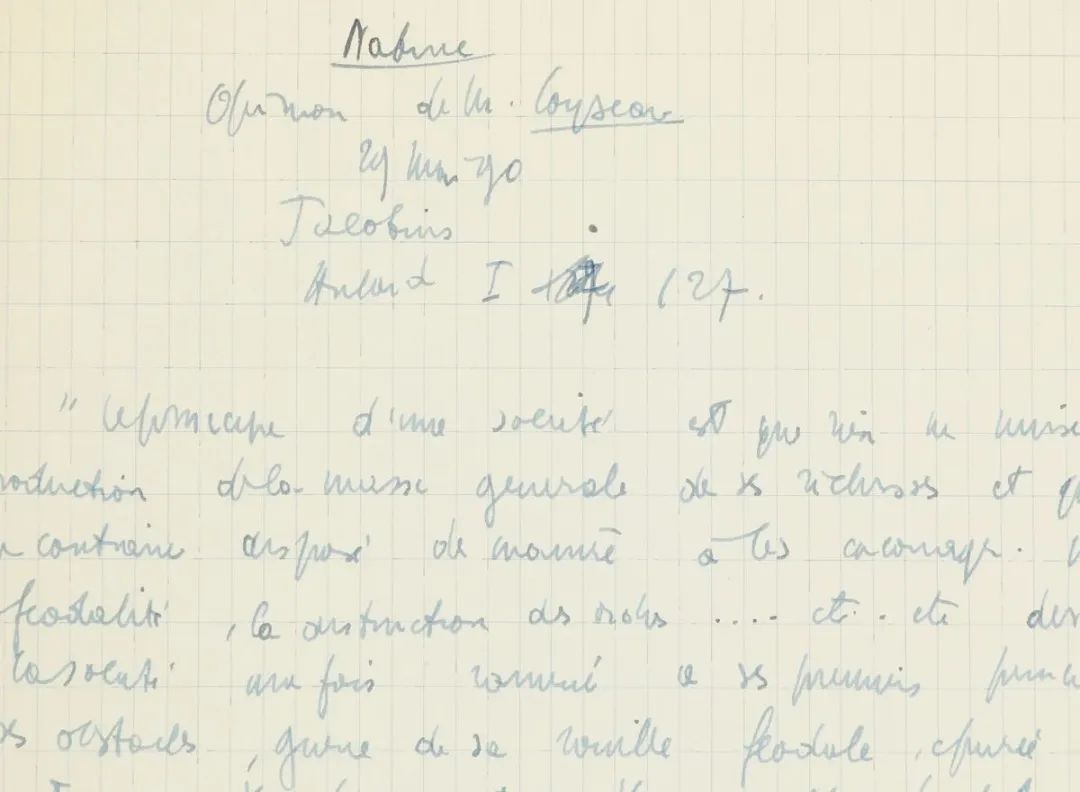 Nature
Opinion de M. Loyseau
29 Mai 90
Jacobins
Aulard I 127.
" Le principe d'une société est que rien ne nuise
production de la masse generale de ses richesses et
contraire disposé de manière à les encourager.
feodalité, la distinction des ordres .... etc. etc
la société une fois ramené a ses premiers
obstacles, guérie de sa rouille féodale, épurée